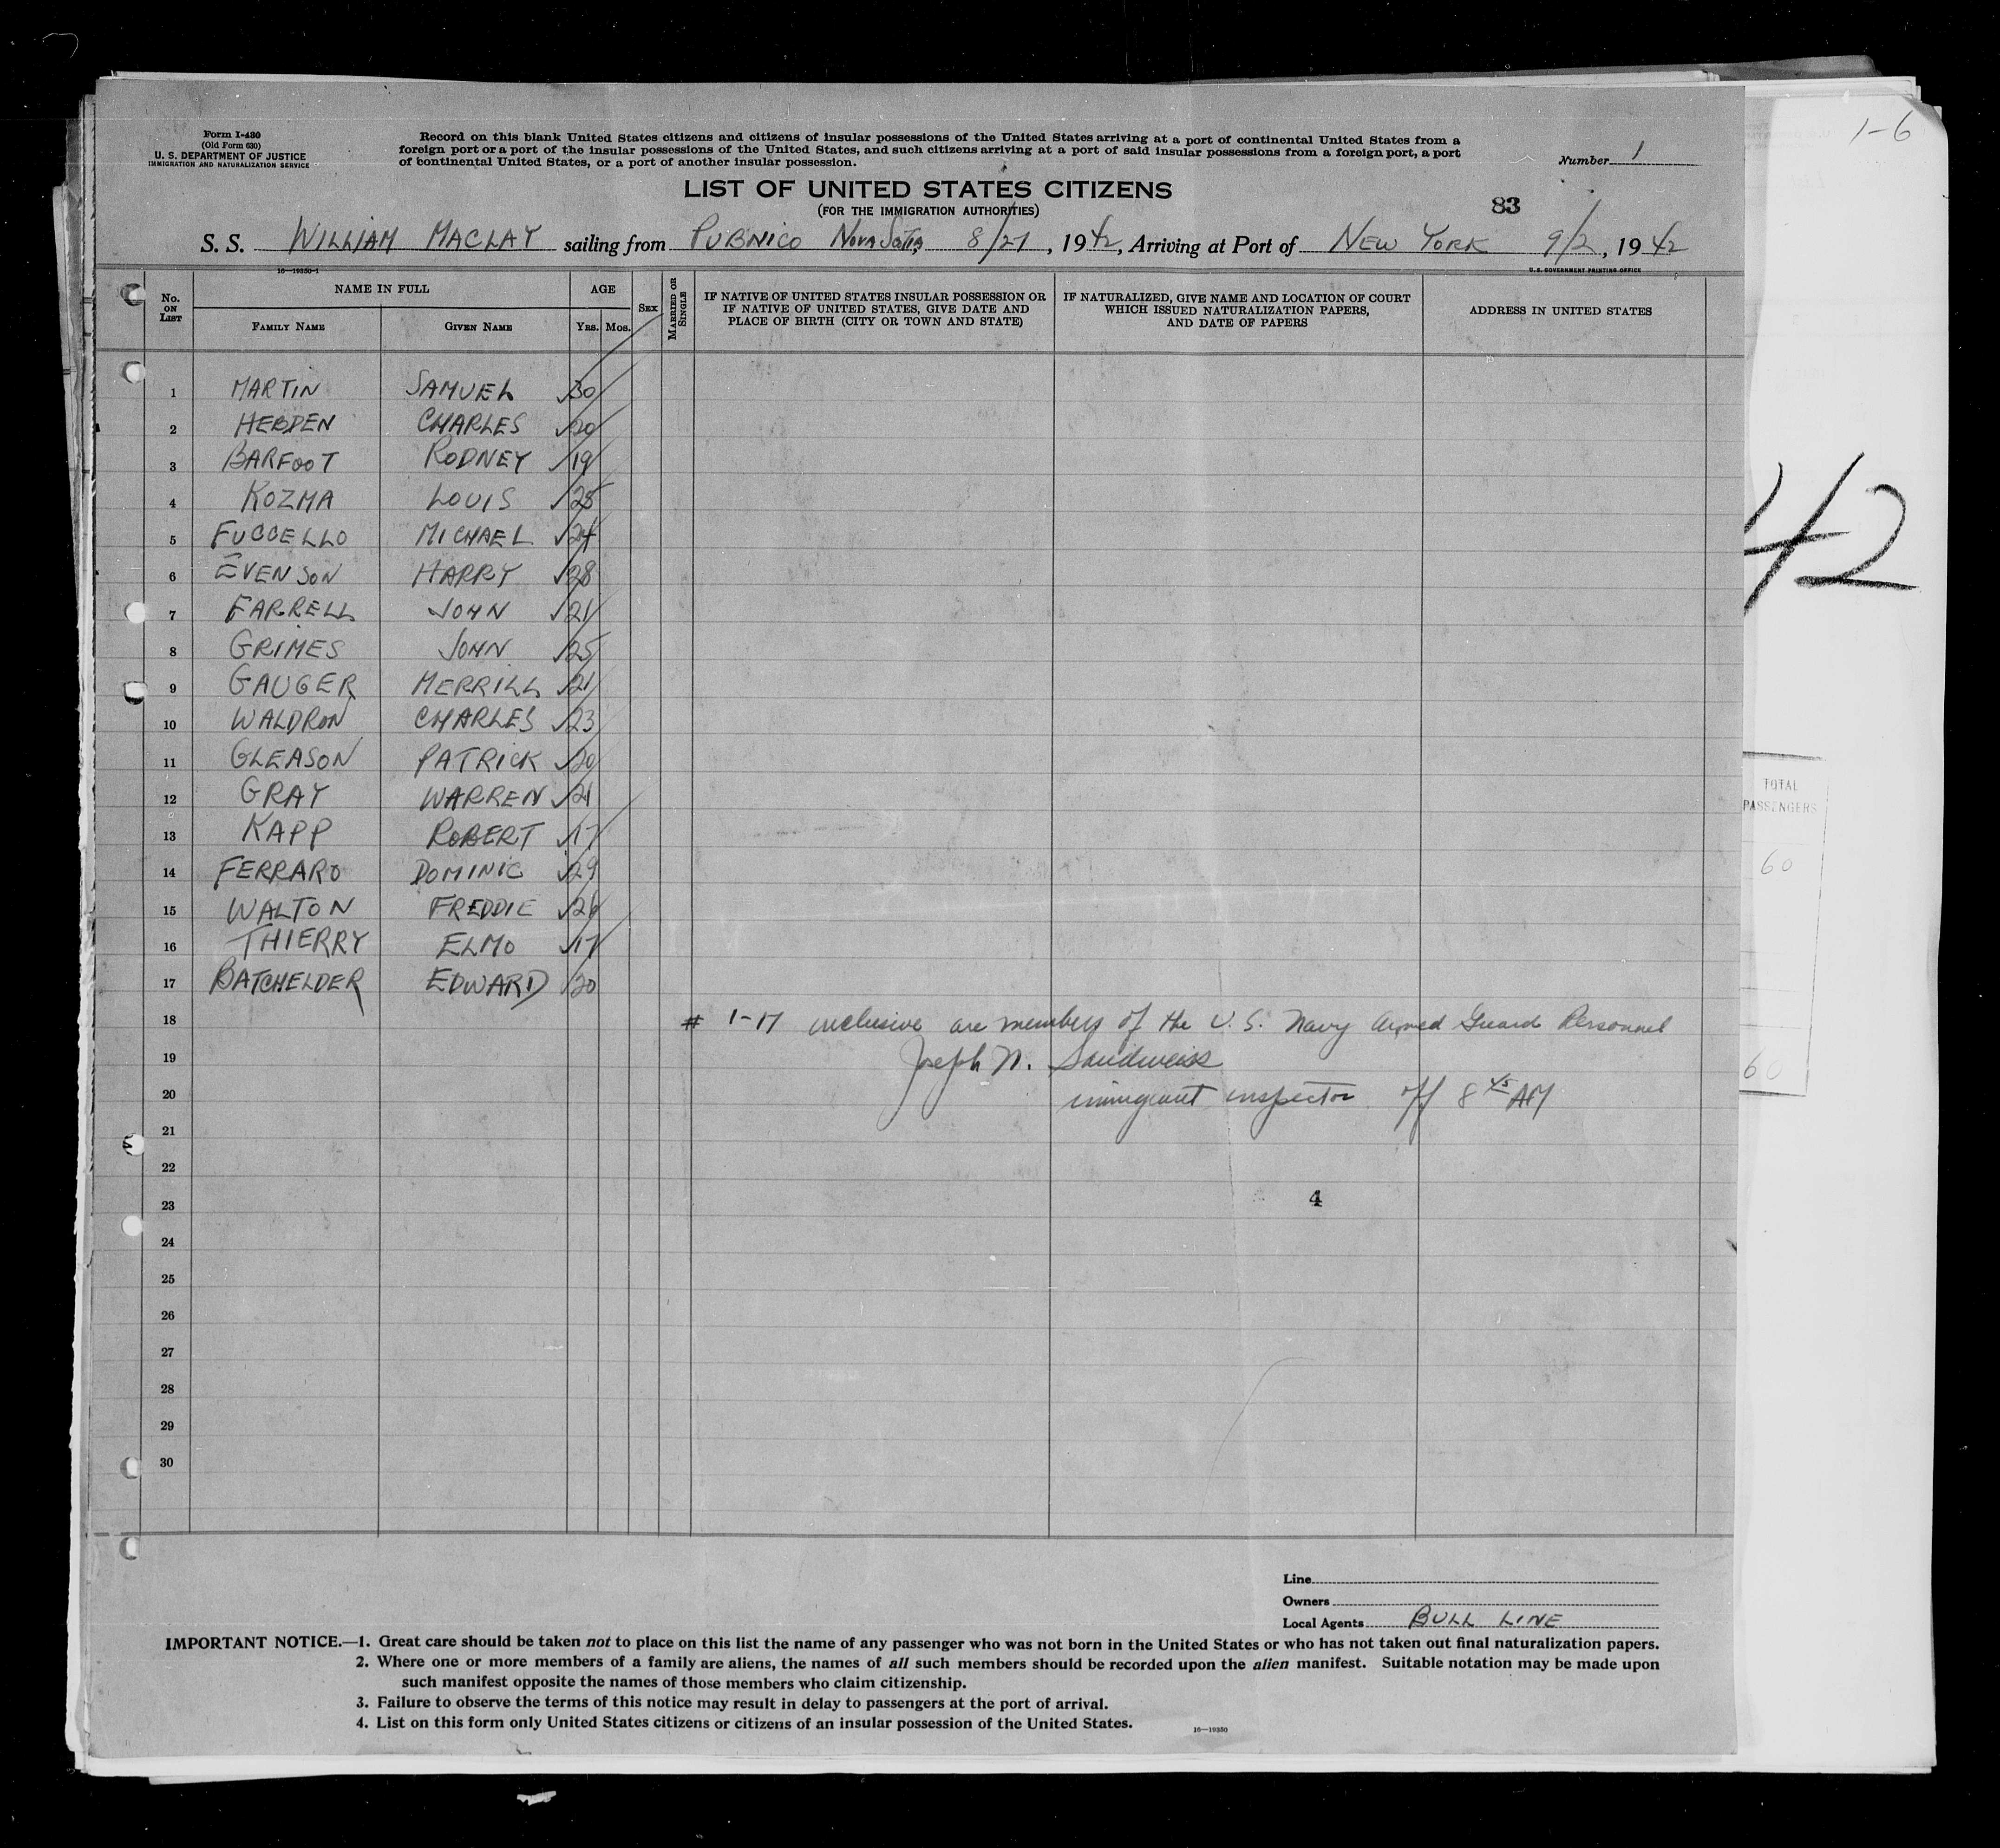 1-6
Form I-430
(Old Form 630)
U. S. DEPARTMENT OF JUSTICE
IMMIGRATION AND NATURALIZATION SERVICE
Record on this blank United States citizens and citizens of insular possessions of the United States arriving at a port of continental United States from a
foreign port or a port of the insular possessions of the United States, and such citizens arriving at a port of said insular possessions from a foreign port, a port
of continental United States, or a port of another insular possession.
Number 1
LIST OF UNITED STATES CITIZENS
(FOR THE IMMIGRATION AUTHORITIES)
83
S. S. WILLIAM MACLAY sailing from PUBNICO NOVA SCOTIA, 8/27, 1942, Arriving at Port of NEW YORK 9/2, 1942
16—19350-1
U. S. GOVERNMENT PRINTING OFFICE
No. ON LIST
NAME IN FULL
FAMILY NAME
GIVEN NAME
AGE
YRS.
MOS.
SEX
MARRIED OR SINGLE
IF NATIVE OF UNITED STATES INSULAR POSSESSION OR
IF NATIVE OF UNITED STATES, GIVE DATE AND
PLACE OF BIRTH (CITY OR TOWN AND STATE)
IF NATURALIZED, GIVE NAME AND LOCATION OF COURT
WHICH ISSUED NATURALIZATION PAPERS,
AND DATE OF PAPERS
ADDRESS IN UNITED STATES
1 MARTIN SAMUEL ✓ 30
2 HEBDEN CHARLES ✓ 20
3 BARFOOT RODNEY ✓ 19
4 KOZMA LOUIS ✓ 25
5 FUCCELLO MICHAEL ✓ 24
6 EVENSON HARRY ✓ 28
7 FARRELL JOHN ✓ 21
8 GRIMES JOHN ✓ 25
9 GAUGER MERRILL ✓ 21
10 WALDRON CHARLES ✓ 23
11 GLEASON PATRICK ✓ 20
12 GRAY WARREN ✓ 21
13 KAPP ROBERT ✓ 17
14 FERRARO DOMINIC ✓ 29
15 WALTON FREDDIE ✓ 26
16 THIERRY ELMO ✓ 17
17 BATCHELDER EDWARD ✓ 20
18 # 1-17 inclusive are members of the U. S. Navy Armed Guard Personnel
19 Joseph N. Sandweiss
20 immigrant inspector off 8 45 AM
21
22
23 4
24
25
26
27
28
29
30
42
TOTAL
PASSENGERS
60
60
Line
Owners
Local Agents BULL LINE
IMPORTANT NOTICE.—1. Great care should be taken not to place on this list the name of any passenger who was not born in the United States or who has not taken out final naturalization papers.
2. Where one or more members of a family are aliens, the names of all such members should be recorded upon the alien manifest. Suitable notation may be made upon
such manifest opposite the names of those members who claim citizenship.
3. Failure to observe the terms of this notice may result in delay to passengers at the port of arrival.
4. List on this form only United States citizens or citizens of an insular possession of the United States.
16—19350